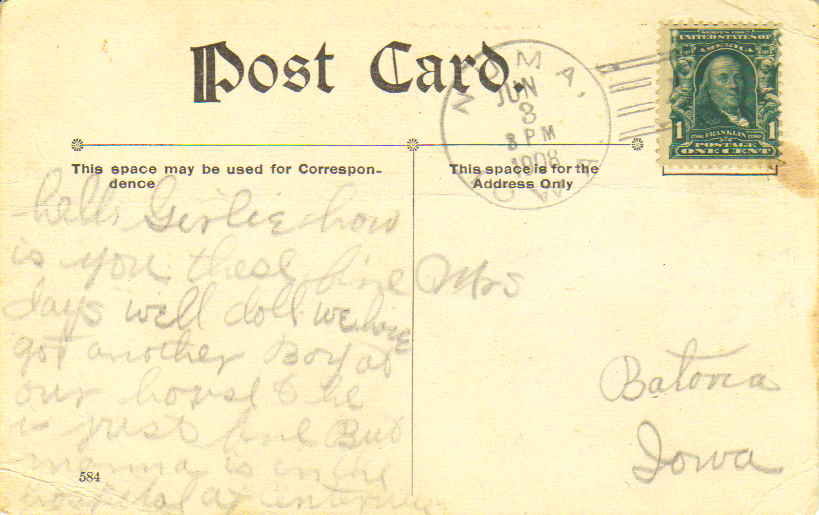 Post Card.
NUMA,
JUN
3
8 PM
1908
IOWA
SERIES 1902
UNITED STATES OF
AMERICA
1 FRANKLIN 1
POSTAGE
ONE CENT
This space may be used for Correspon-
dence
This space is for the
Address Only
hello Girlie how
is you these fine
days well doll we have
got another Boy at
our house & he
is just fine But
mamma is in the
hospital at
584
Mrs
Batavia
Iowa